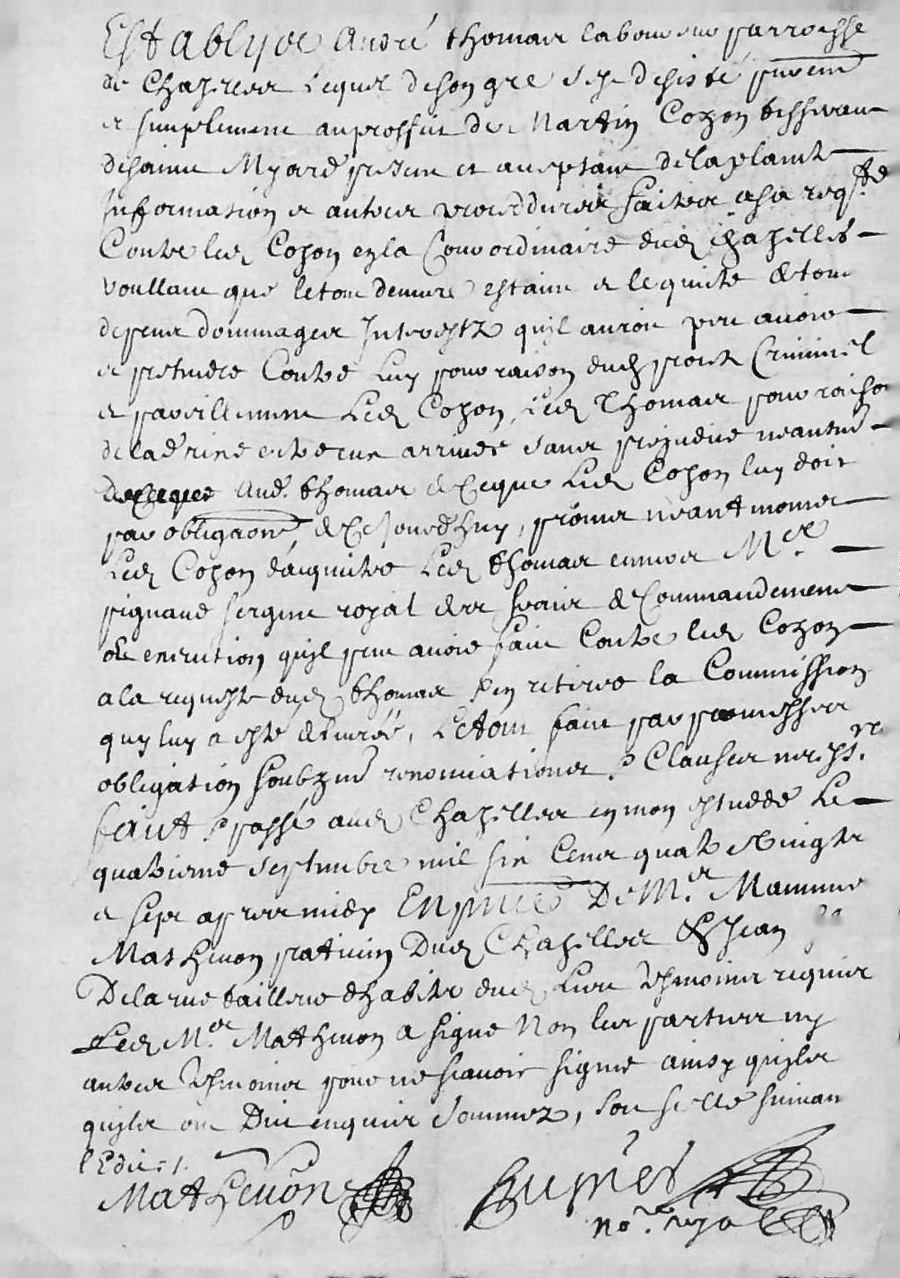 Estably est André thomas laboureur parroisse
de Chazelles Lequel de son gre s'est desisté purem^t
et simplement au proffit de Martin Cozon tisserant
de saint Myard present et aceptant de la plainte
Information et autres procedures faites a sa reqs^te
Contre led Cozon en la Cour ordinaire dud Chazelles
voullant que le tout demure estaint et le quite de tous
depens dommages Interestz quil auroit peu avoir
et pretendre Contre Luy pour raison dud procès Criminel
et pareillement Led Cozon, Led Thomas pour raison
de la entre eux arrivée sans prejudice neantm^s
And^é thomas de Ce que Led Cozon luy doit
par obligaõn de Cejourdhuy, promet neantmoins
Led Cozon d'aquiter Led thomas envers M^re
pignand sergent royal des frais de Commandement
et execution quil peut avoir fait Contre led Cozon
a la requeste dud thomas en retirer la Commission
quy luy a esté delivrée, Letout fait par promesses
obligation soubzm^s renonciations & Clauses necess^res
fait & passé aud Chazelles en mon estudde Le
quatriesme septembre mil six Cens quatre vingts
et sept apres midy En p^nce De M^e Mammes
Mathevon praticien Dud Chazelles & Jean
Delarue tailleur dhabits dud Lieu tesmoins requis
Led M^e Mathevon a signe Non les parties ny
autre tesmoins pour ne scavoir signer ainsy quils
quils ont Dit enquis & sommez, soit scellé suivant
l'Edict.
Mathevon
no^re royal